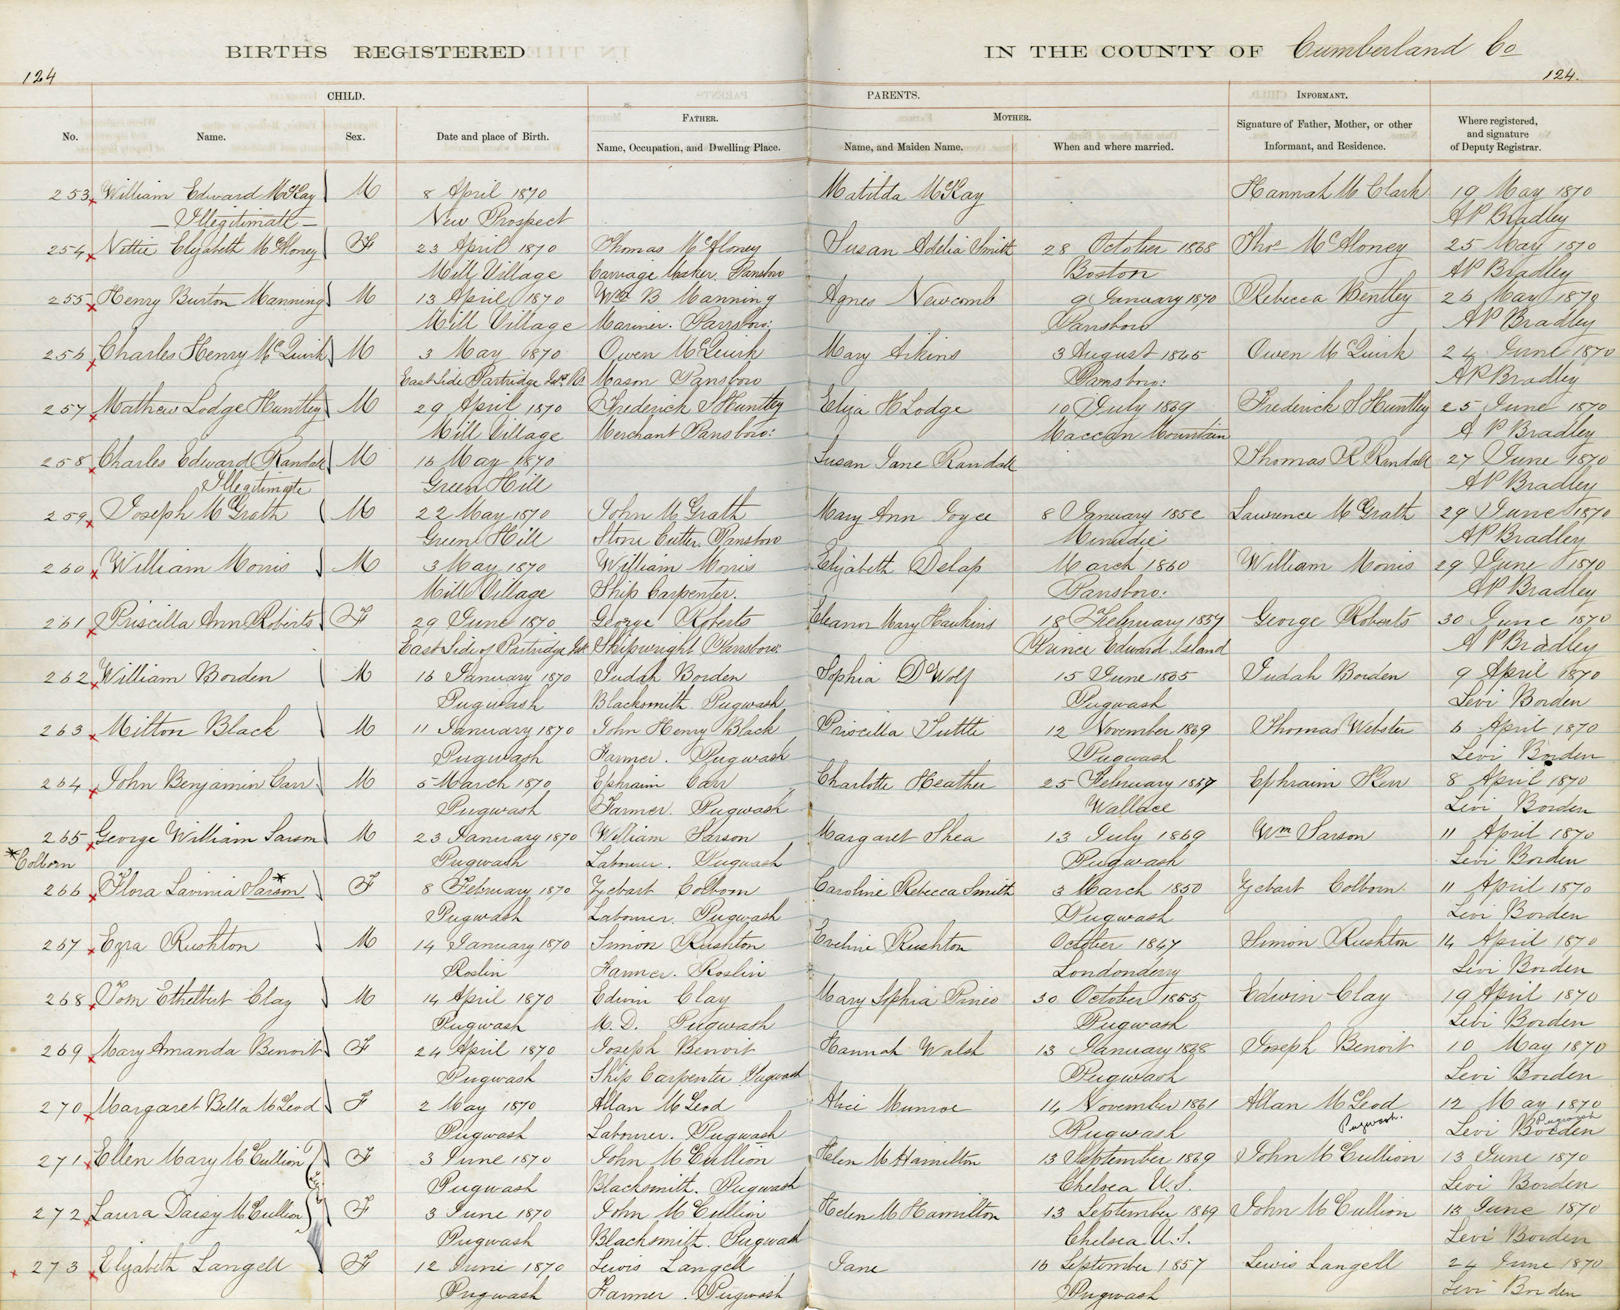 BIRTHS REGISTERED IN THE COUNTY OF Cumberland Co
124 124.
CHILD. PARENTS. INFORMANT.
FATHER. MOTHER.
No. Name. Sex. Date and place of Birth. Name, Occupation, and Dwelling Place. Name, and Maiden Name. When and where married. Signature of Father, Mother, or other Informant, and Residence. Where registered, and signature of Deputy Registrar.
253 William Edward McKay M 8 April 1870 Matilda McKay Hannah M Clark 19 May 1870
— Illegitimate — New Prospect AP Bradley
254 Nettie Elizabeth McAloney F 23 April 1870 Thomas McAloney Susan Adelia Smith 28 October 1868 Thos McAloney 25 May 1870
Mill Village Carriage Maker. Parrsboro Boston AP Bradley
255 Henry Burton Manning M 13 April 1870 Wm B Manning Agnes Newcomb 9 January 1870 Rebecca Bentley 26 May 1870
Mill Village Mariner. Parrsboro: Parrsboro AP Bradley
256 Charles Henry McQuirk M 3 May 1870 Owen McQuirk Mary Aikins 3 August 1865 Owen McQuirk 24 June 1870
East Side Partridge Isd Rr Mason Parrsboro Parrsboro: AP Bradley
257 Mathew Lodge Huntley M 29 April 1870 Frederick S Huntley Eliza H Lodge 10 July 1869 Frederick S Huntley 25 June 1870
Mill Village Merchant Parrsboro: Maccan Mountain A P Bradley
258 Charles Edward Randall M 16 May 1870 Susan Jane Randall Thomas R Randall 27 June 1870
Illegitimate Green Hill AP Bradley
259 Joseph McGrath M 22 May 1870 John McGrath Mary Ann Joyce 8 January 1852 Lawrence McGrath 29 June 1870
Green Hill Stone Cutter. Parrsboro Minudie AP Bradley
260 William Morris M 3 May 1870 William Morris Elizabeth Delap March 1860 William Morris 29 June 1870
Mill Village Ship Carpenter. Parrsboro: AP Bradley
261 Priscilla Ann Roberts F 29 June 1870 George Roberts Eleanor Mary Hawkins 18 February 1857 George Roberts 30 June 1870
East Side of Partridge Isd Shipwright Parrsboro: Prince Edward Island A P Bradley
262 William Borden M 16 January 1870 Judah Borden Sophia DWolf 15 June 1865 Judah Borden 9 April 1870
Pugwash Blacksmith Pugwash Pugwash Levi Borden
263 Milton Black M 11 January 1870 John Henry Black Priscilla Tuttle 12 November 1869 Thomas Webster 6 April 1870
Pugwash Farmer. Pugwash Pugwash Levi Borden
264 John Benjamin Carr M 5 March 1870 Ephraim Carr Charlotte Heather 25 February 1857 Ephraim Kerr 8 April 1870
Pugwash Farmer. Pugwash Wallace Levi Borden
265 George William Sarson M 23 January 1870 William Sarson Margaret Shea 13 July 1869 Wm Sarson 11 April 1870
*Colborn Pugwash Labourer. Pugwash Pugwash Levi Borden
266 Flora Lavinia Sarson* F 8 February 1870 Zebart Colborn Caroline Rebecca Smith 3 March 1850 Zebart Colborn 11 April 1870
Pugwash Labourer. Pugwash Pugwash Levi Borden
267 Ezra Rushton M 14 January 1870 Simon Rushton Eveline Rushton October 1847 Simon Rushton 14 April 1870
Roslin Farmer. Roslin Londonderry Levi Borden
268 Tom Ethelbert Clay M 14 April 1870 Edwin Clay Mary Sophia Pineo 30 October 1855 Edwin Clay 19 April 1870
Pugwash M. D. Pugwash Pugwash Levi Borden
269 Mary Amanda Benoit F 24 April 1870 Joseph Benoit Hannah Walsh 13 January 1868 Joseph Benoit 10 May 1870
Pugwash Ship Carpenter Pugwash Pugwash Levi Borden
270 Margaret Bella McLeod F 2 May 1870 Allan McLeod Alice Munroe 14 November 1861 Allan McLeod 12 May 1870
Pugwash Labourer. Pugwash Pugwash Pugwash. Levi Borden Pugwash
271 Ellen Mary McCullion F 3 June 1870 John McCullion Helen M Hamilton 13 September 1869 John McCullion 13 June 1870
Pugwash Blacksmith. Pugwash Chelsea U.S. Levi Borden
272 Laura Daisy McCullion F 3 June 1870 John McCullion Helen M Hamilton 13 September 1869 John McCullion 13 June 1870
Pugwash Blacksmith. Pugwash Chelsea U.S. Levi Borden
273 Elizabeth Langell F 12 June 1870 Lewis Langell Jane 16 September 1857 Lewis Langell 24 June 1870
Pugwash Farmer. Pugwash Pugwash Levi Borden